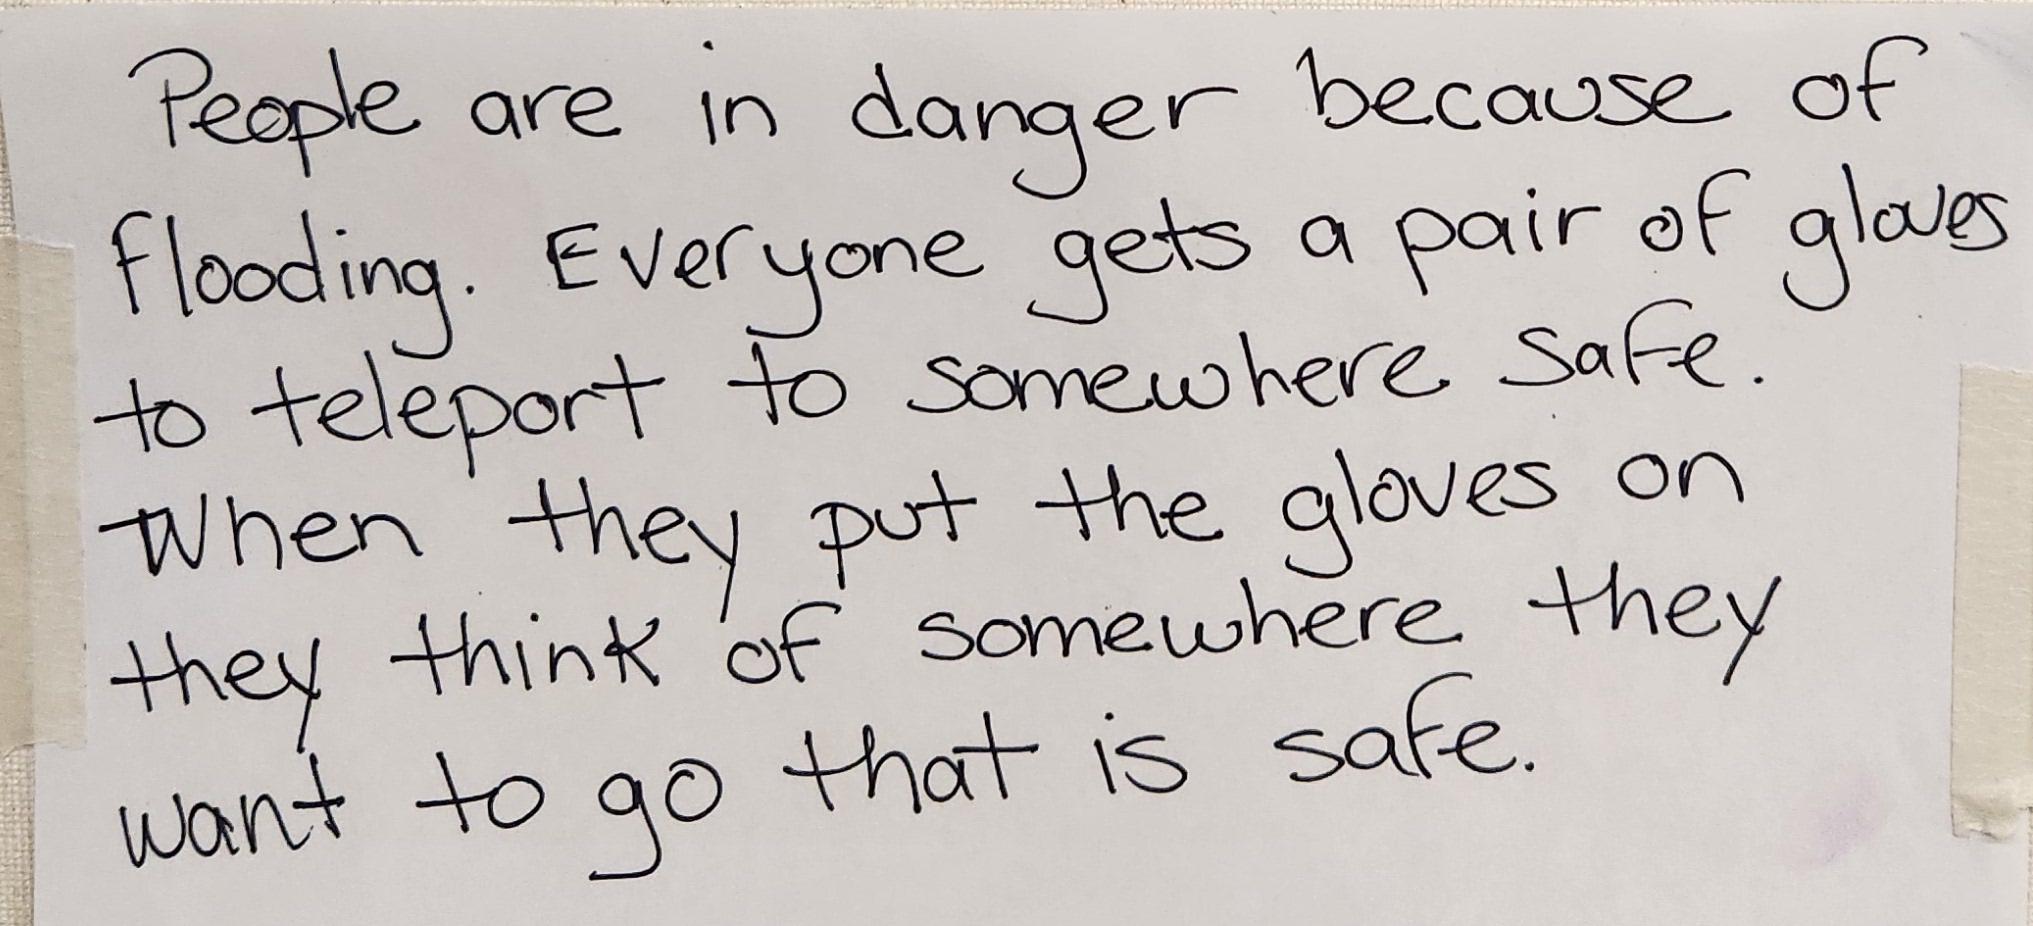 People are in danger because of
flooding. Everyone gets a pair of gloves
to teleport to somewhere safe.
When they put the gloves on
they think of somewhere they
want to go that is safe.